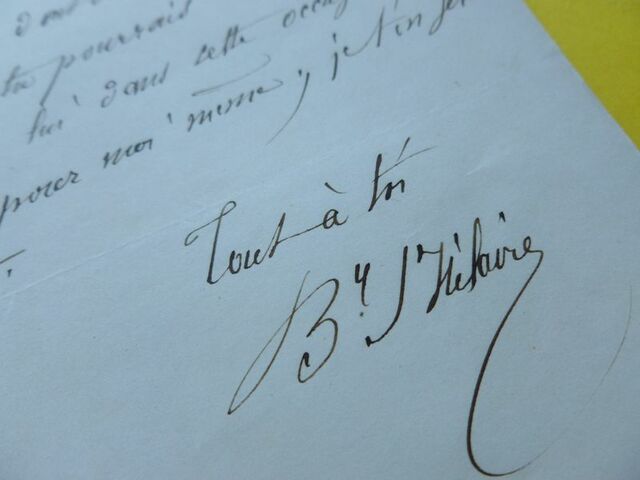 tu pourrais
lui dans cette occa
pour moi même, je t'en
Tout à toi
By. St Hilaire